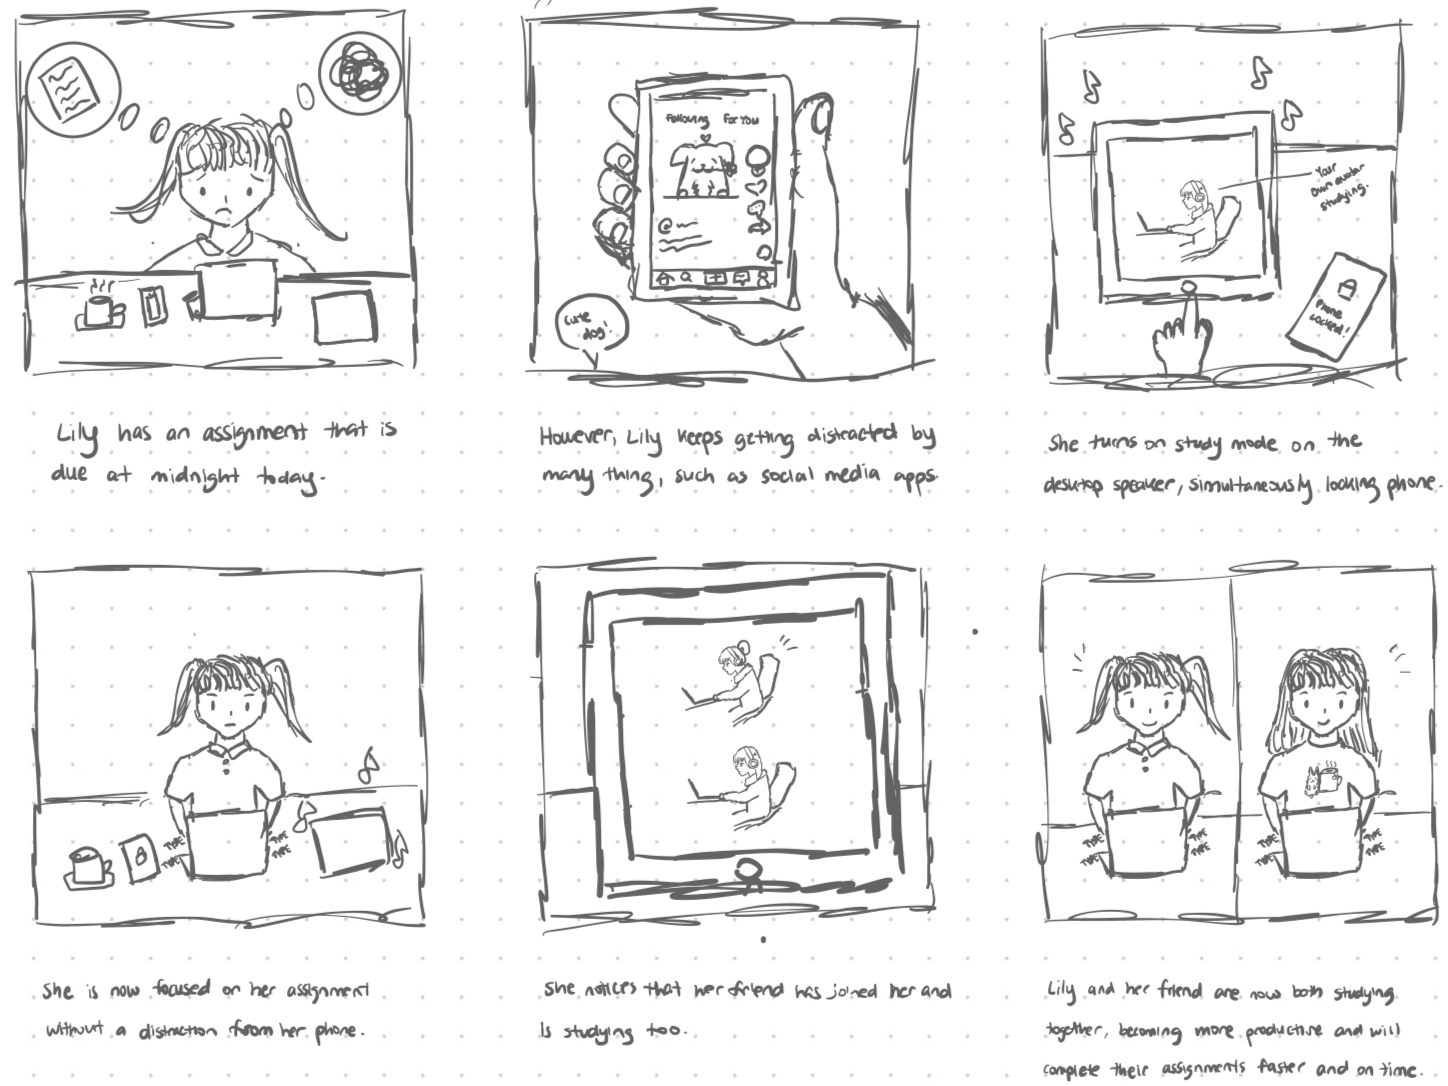 Lily has an assignment that is
due at midnight today.
Following For You
@
cute
dog!
However, Lily keeps getting distracted by
many thing, such as social media apps.
Your
own avatar
studying.
Phone
Locked!
She turns on study mode on the
desktop speaker, simultaneously locking phone.
TYPE TYPE
TYPE TYPE
She is now focused on her assignment
without a distraction from her phone.
She notices that her friend has joined her and
is studying too.
TYPE TYPE TYPE TYPE
TYPE TYPE TYPE TYPE
Lily and her friend are now both studying
together, becoming more productive and will
complete their assignments faster and on time.